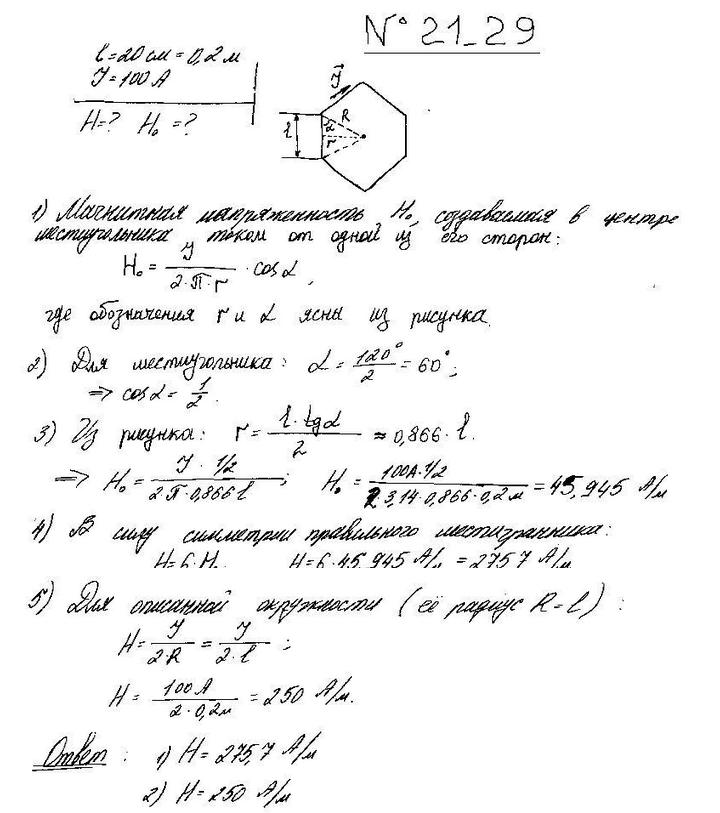 N° 21_29
l = 20 см = 0,2 м
J = 100 А
H = ? H₀ = ?
J⃗
R
α
l
r
1) Магнитная напряженность H₀, создаваемая в центре
шестиугольника током от одной из его сторон:
H₀ = J / (2·П·r) · cosα,
где обозначения r и α ясны из рисунка.
2) Для шестиугольника: α = 120°/2 = 60°;
⇒ cosα = 1/2.
3) Из рисунка: r = (l·tgα)/2 ≈ 0,866·l.
⇒ H₀ = (J·1/2) / (2·П·0,866 l); H₀ = (100А·1/2) / (2·3,14·0,866·0,2м) = 45,945 А/м
4) В силу симметрии правильного шестигранника:
H = 6·H₀ H = 6·45,945 А/м = 275,7 А/м
5) Для описанной окружности (её радіус R = l):
H = J / (2·R) = J / (2·l);
H = 100А / (2·0,2м) = 250 А/м.
Ответ: 1) H = 275,7 А/м
2) H = 250 А/м